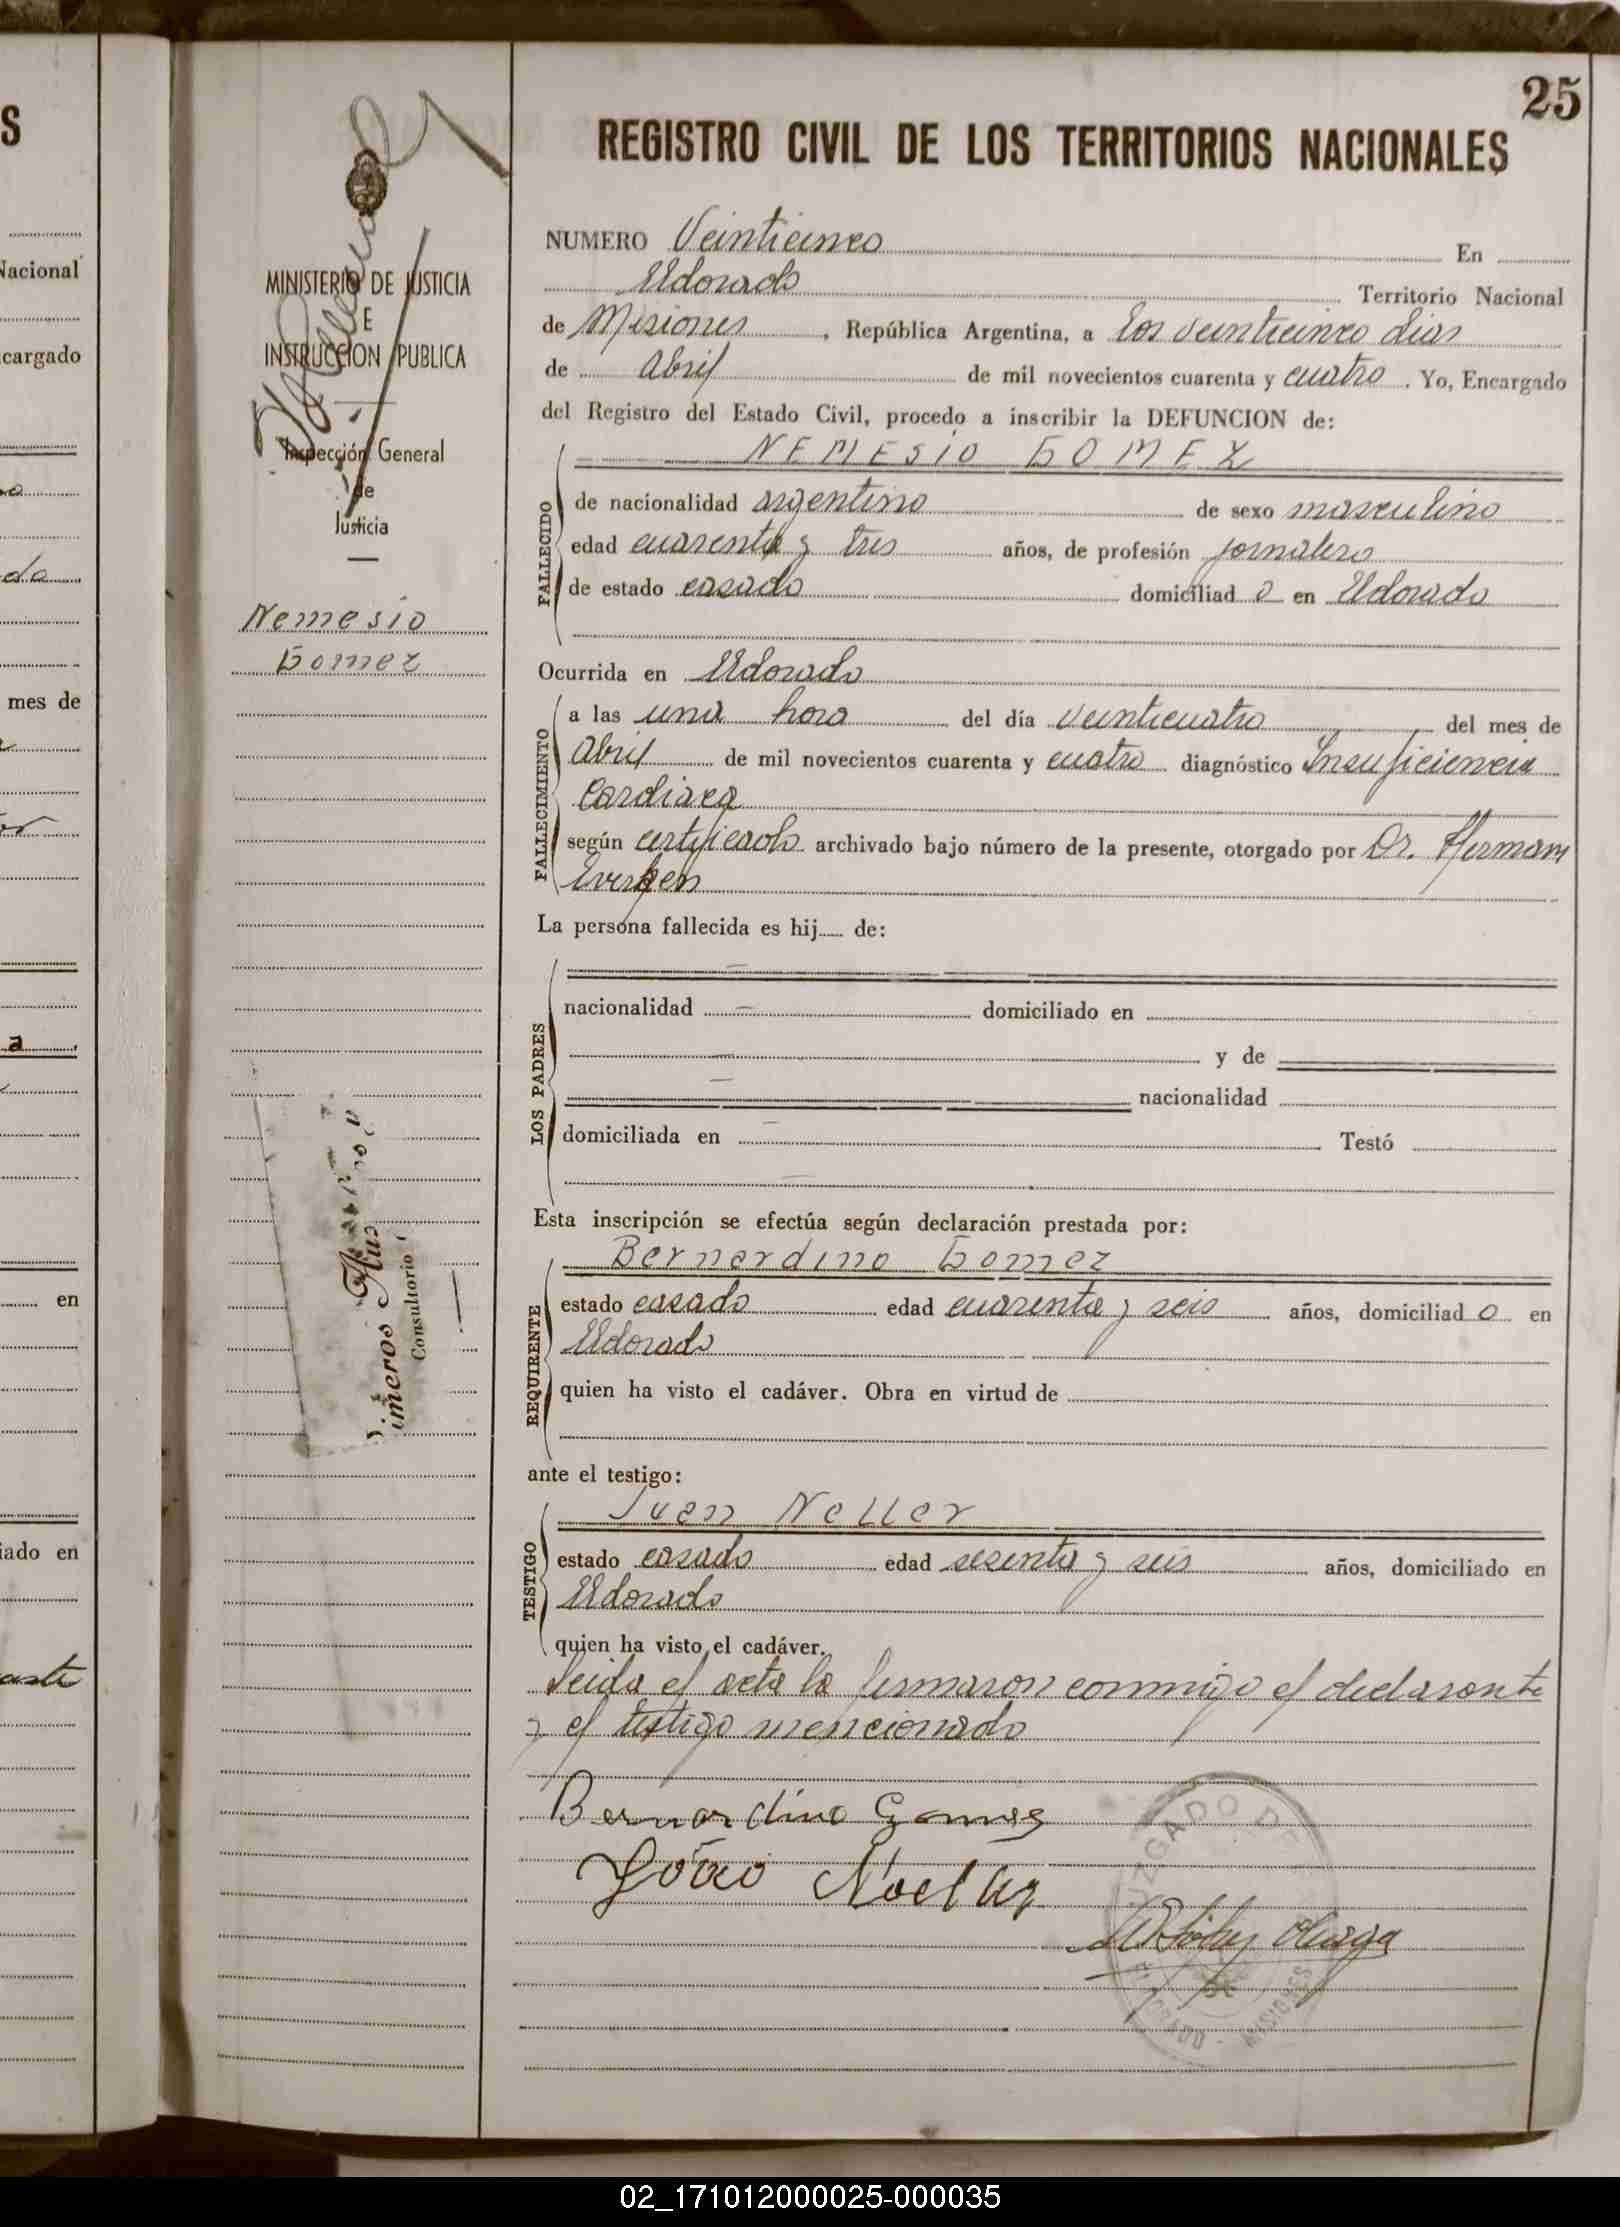 25
REGISTRO CIVIL DE LOS TERRITORIOS NACIONALES
NUMERO Veinticinco En
Eldorado Territorio Nacional
de Misiones, República Argentina, a los veinticinco dias
de Abril de mil novecientos cuarenta y cuatro. Yo, Encargado
del Registro del Estado Civil, procedo a inscribir la DEFUNCION de:
NEMESIO GOMEZ
FALLECIDO
de nacionalidad argentino de sexo masculino
edad cuarenta y tres años, de profesión jornalero
de estado casado domiciliad o en Eldorado
Ocurrida en Eldorado
FALLECIMIENTO
a las una hora del día veinticuatro del mes de
Abril de mil novecientos cuarenta y cuatro diagnóstico Insuficiencia
Cardiaca
según certificado archivado bajo número de la presente, otorgado por Dr. Herman
La persona fallecida es hij de:
LOS PADRES
nacionalidad domiciliado en
y de
nacionalidad
domiciliada en Testó
Esta inscripción se efectúa según declaración prestada por:
Bernardino Gomez
REQUIRENTE
estado casado edad cuarenta y seis años, domiciliad o en
Eldorado
quien ha visto el cadáver. Obra en virtud de
ante el testigo:
Juan Neller
TESTIGO
estado casado edad sesenta y seis años, domiciliado en
Eldorado
quien ha visto el cadáver.
Leida el acta la firmaron conmigo el declarante
y el testigo mencionado
Bernardino Gomes
JUZGADO DE
ELDORADO - MISIONES
MINISTERIO DE JUSTICIA
E
INSTRUCCION PUBLICA
Inspección General
de
Justicia
Nemesio
Gomez
imeros Aus
Consultorio
S
Nacional
cargado
da
mes de
a
en
iado en
02_171012000025-000035